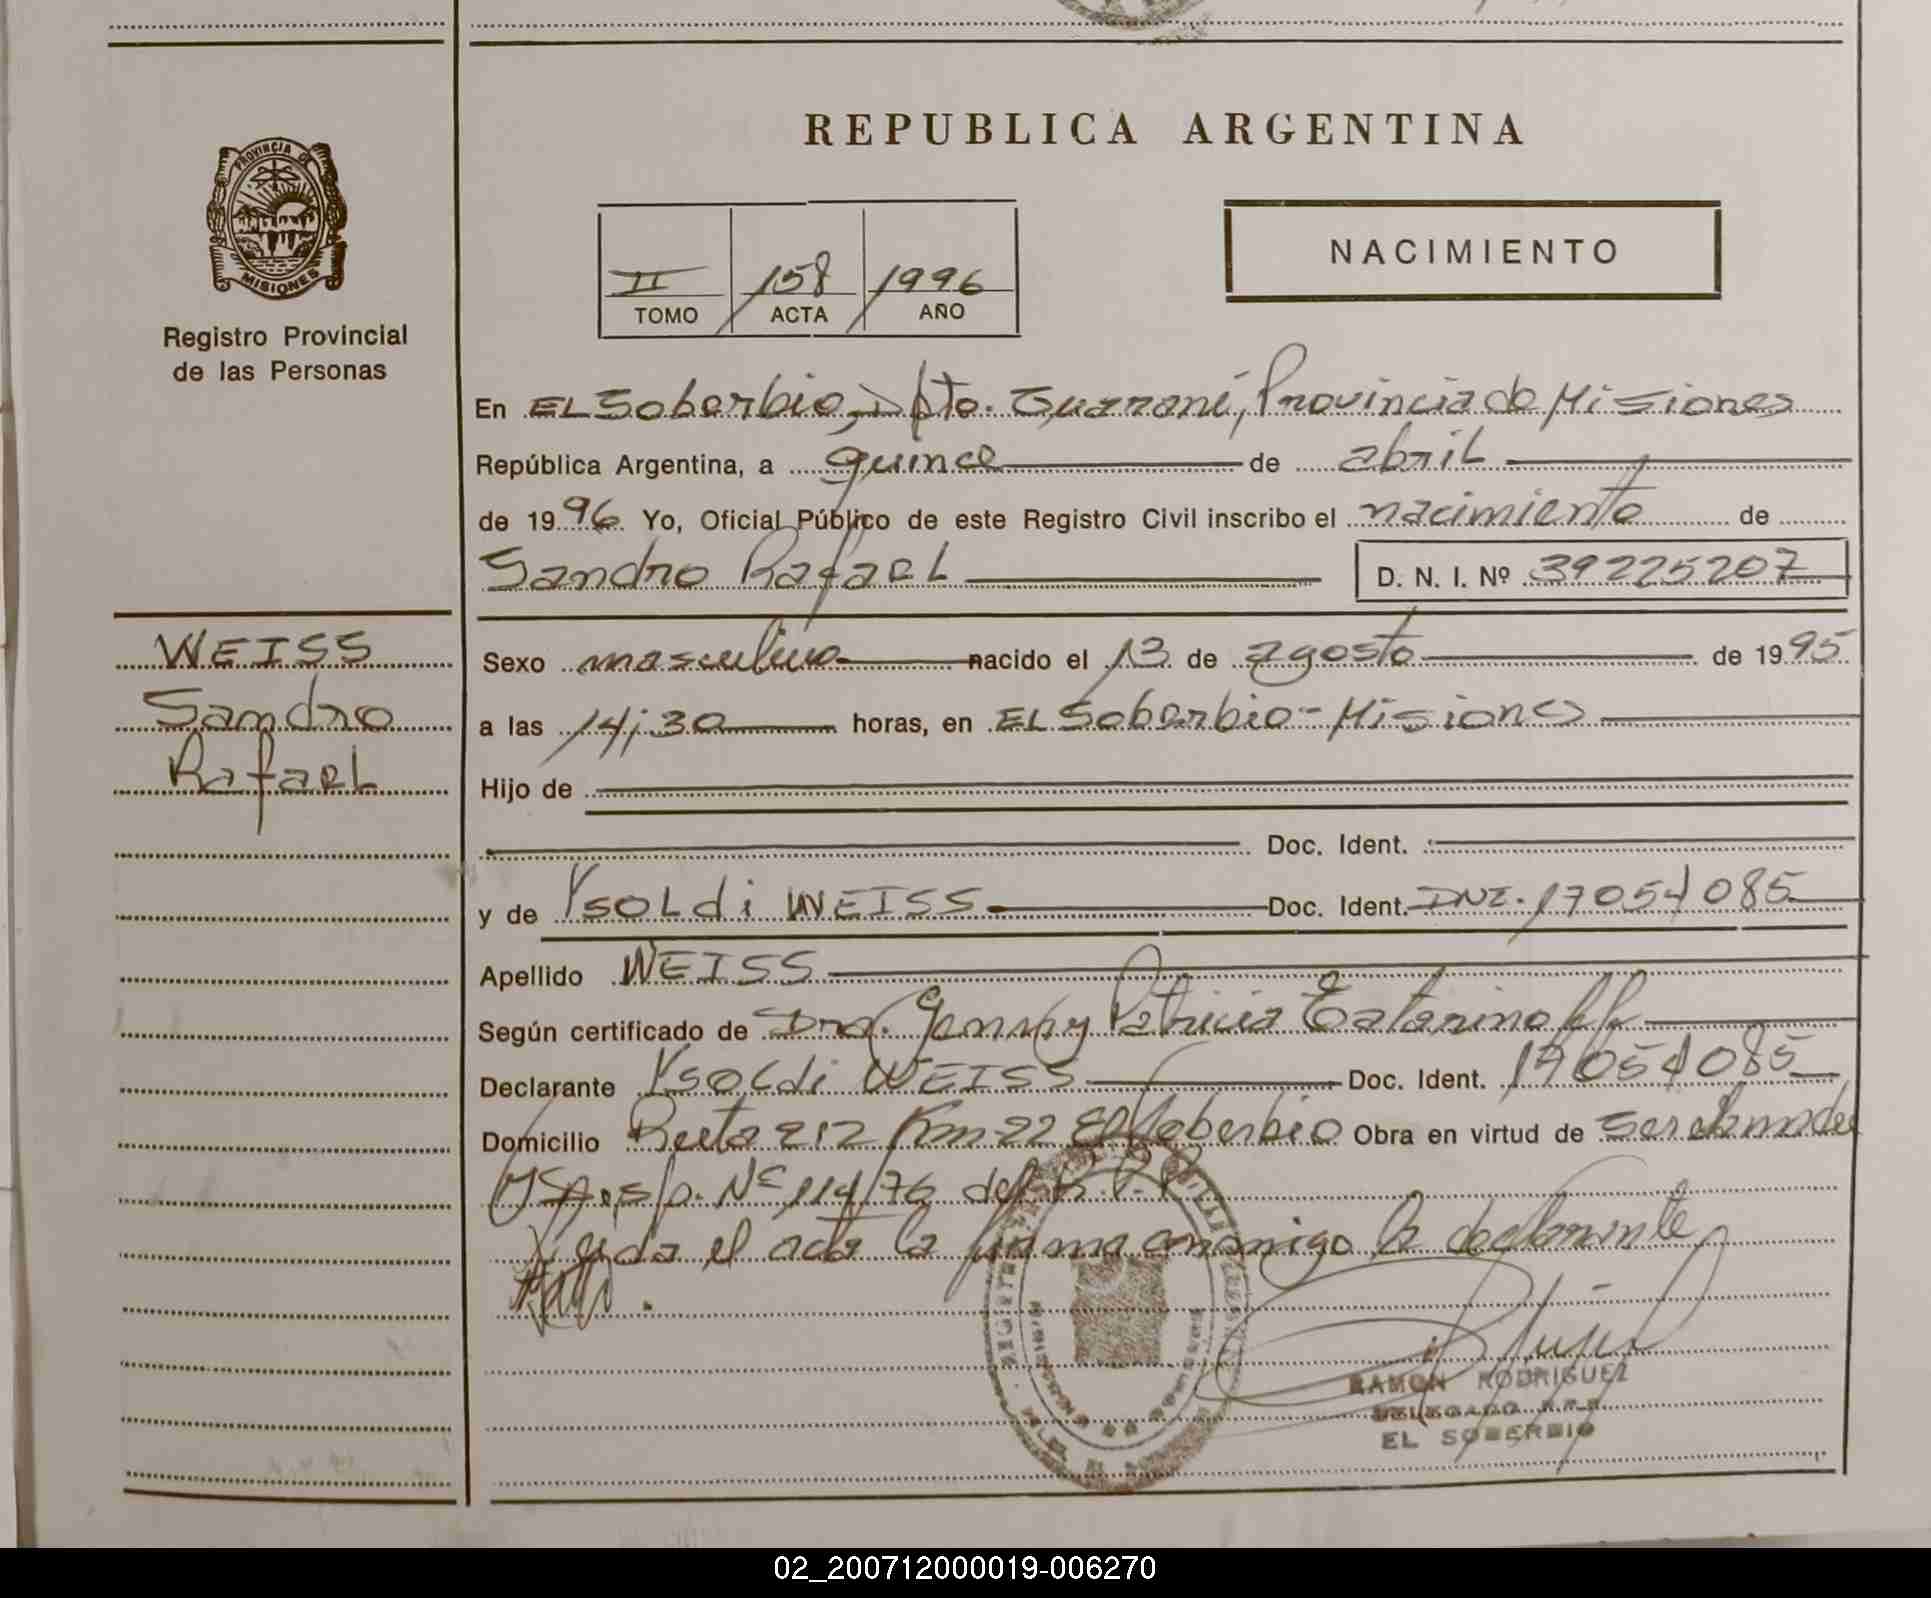 REPUBLICA ARGENTINA
PROVINCIA DE
MISIONES
Registro Provincial
de las Personas
II 158 1996
TOMO ACTA AÑO
NACIMIENTO
En EL Soberbio, Dpto. Guaraní, Provincia de Misiones
República Argentina, a quince de abril
de 1996 Yo, Oficial Público de este Registro Civil inscribo el nacimiento de
Sandro Rafael D. N. I. Nº 39225207
WEISS
Sandro
Rafael
Sexo masculino nacido el 13 de agosto de 1995
a las 14;30 horas, en EL Soberbio-Misiones
Hijo de
Doc. Ident.
y de Ysoldi WEISS Doc. Ident. DNI. 17051085
Apellido WEISS
Según certificado de Dra. Patricia
Declarante Ysoldi WEISS Doc. Ident. 17051085
Domicilio Ruta 212 Km 22 El Soberbio Obra en virtud de
Nº 114/76
el acta la firma conmigo la declarante
RAMON RODRIGUEZ
DELEGADO R.P.P.
EL SOBERBIO
02_200712000019-006270